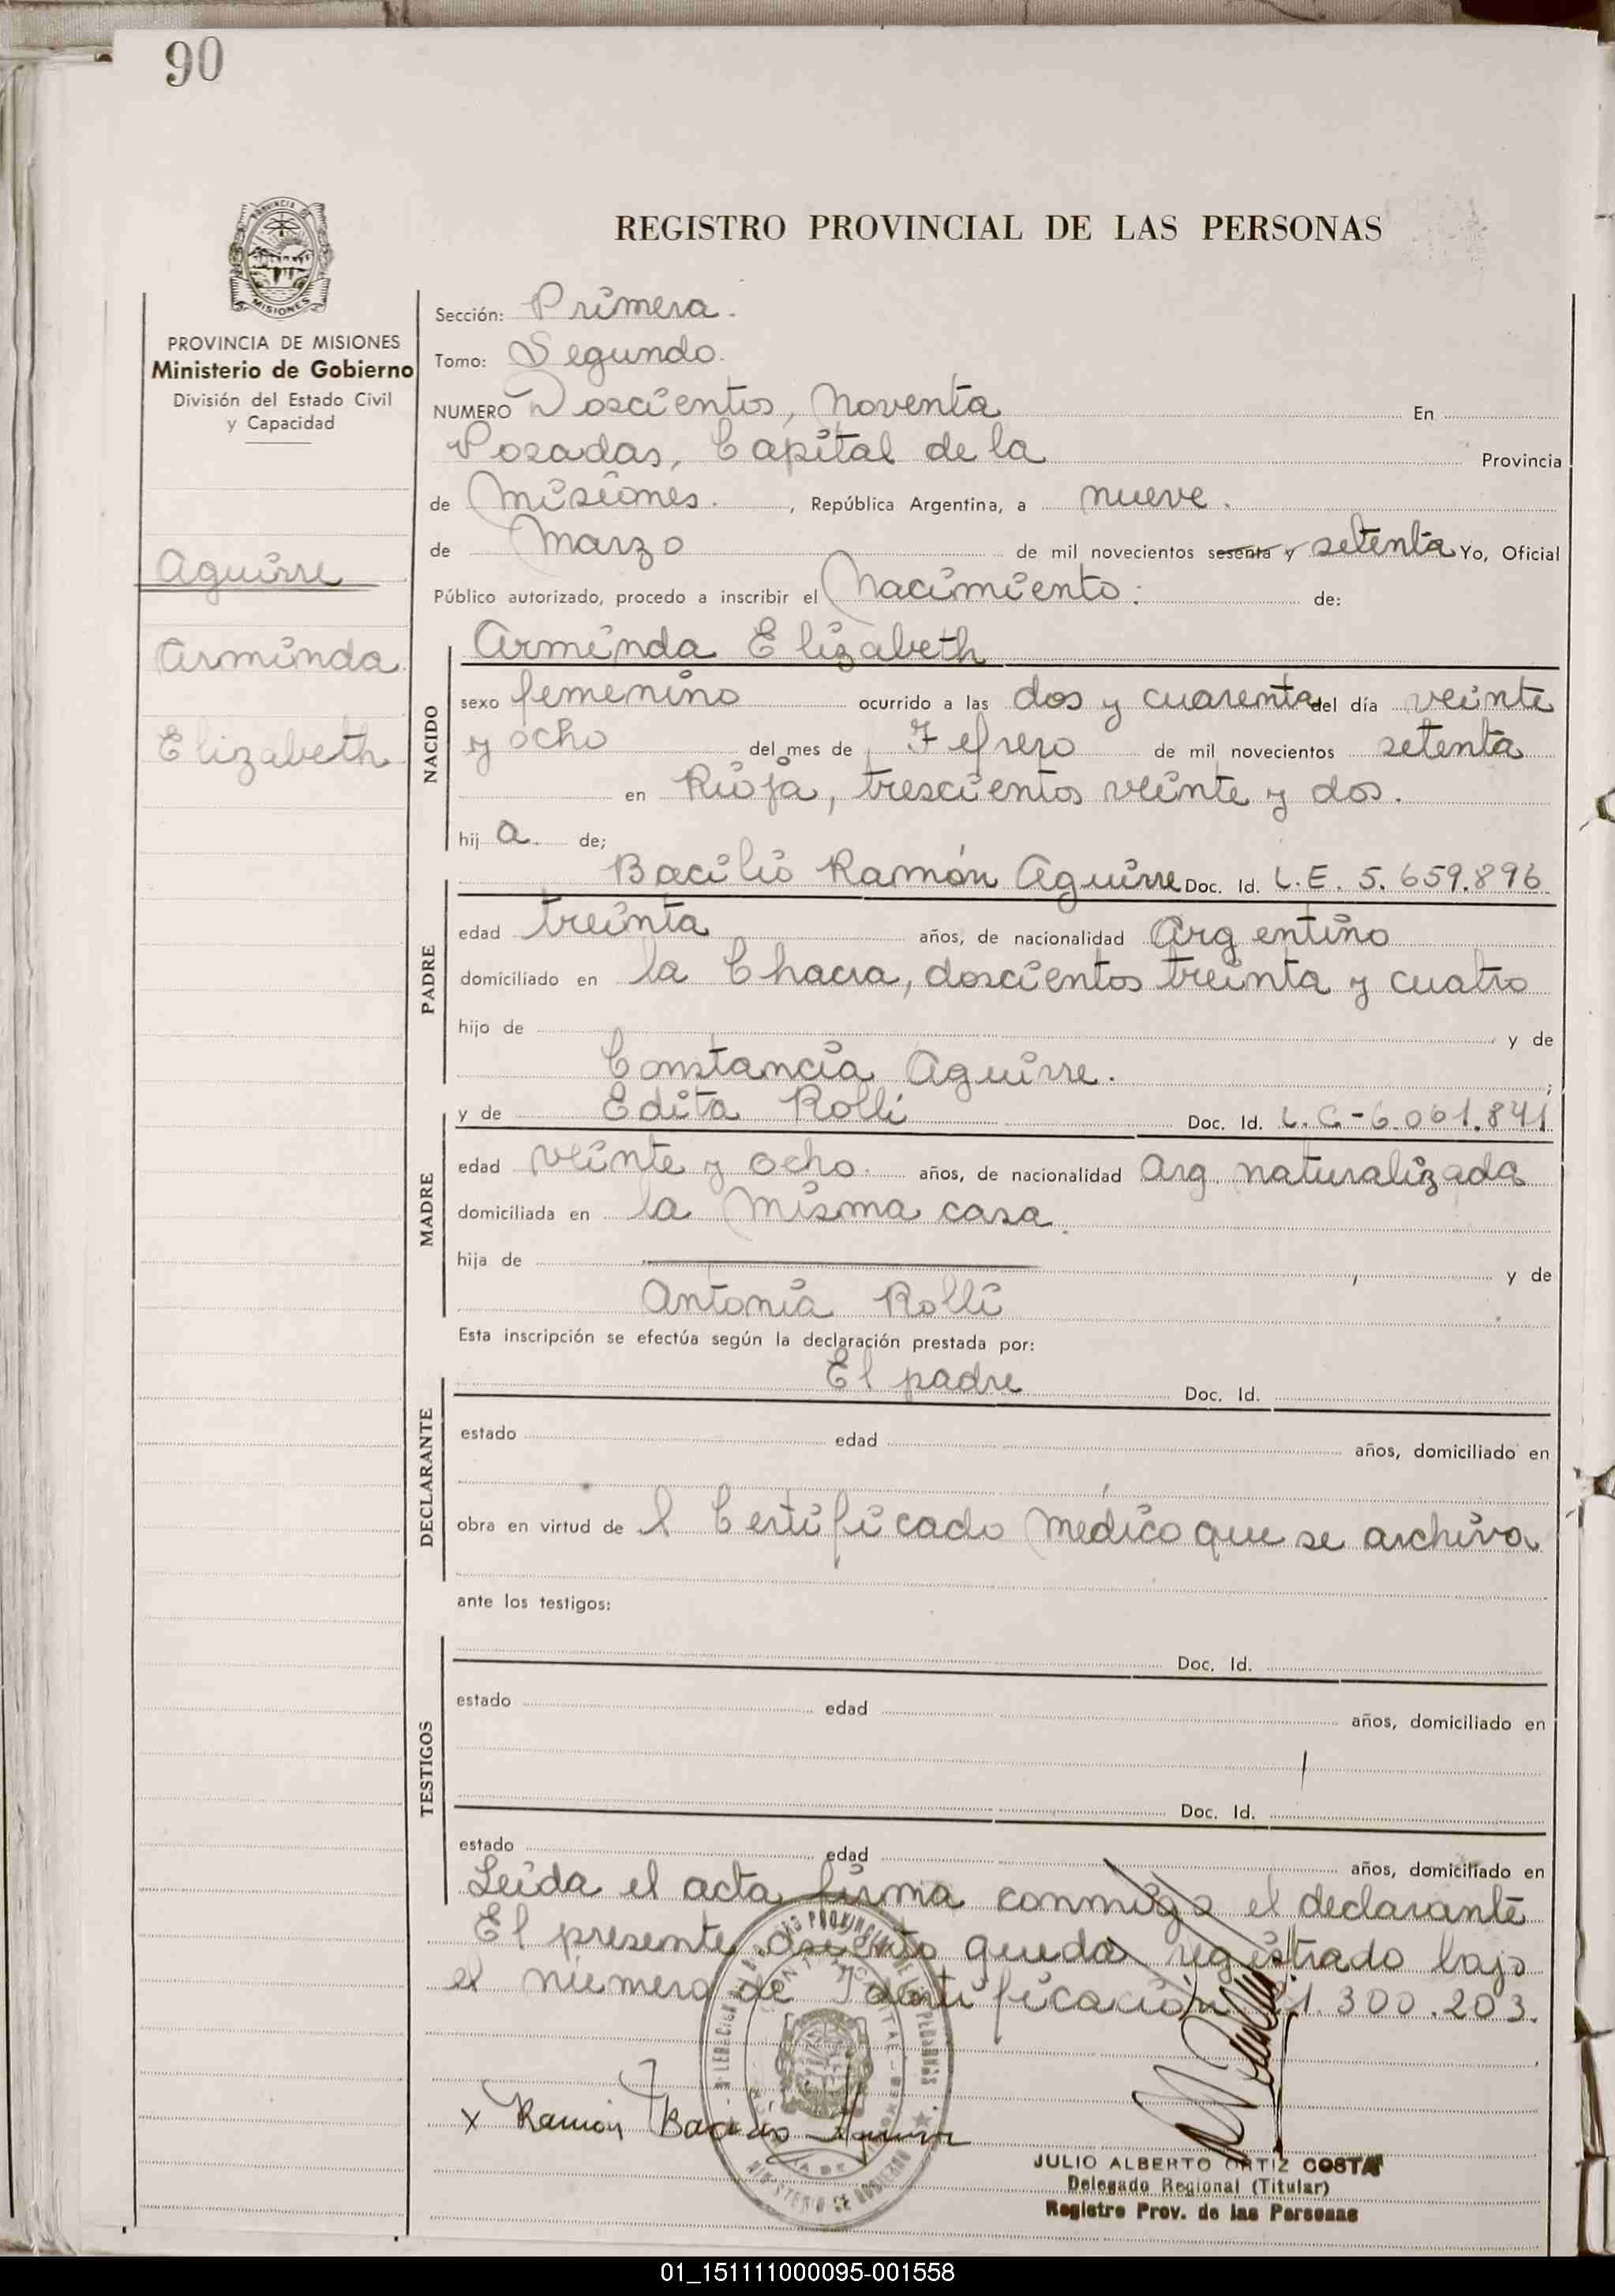 90
REGISTRO PROVINCIAL DE LAS PERSONAS
PROVINCIA DE MISIONES
Ministerio de Gobierno
División del Estado Civil
y Capacidad
Aguirre
Arminda
Elizabeth
Sección: Primera.
Tomo: Segundo.
NUMERO Doscientos, Noventa En
Posadas, Capital de la Provincia
de Misiones. , República Argentina, a nueve.
de Marzo de mil novecientos sesenta y setenta Yo, Oficial
Público autorizado, procedo a inscribir el Nacimiento: de:
NACIDO
Arminda Elizabeth
sexo femenino ocurrido a las dos y cuarenta del día veinte
y ocho del mes de Febrero de mil novecientos setenta
en Rioja, trescientos veinte y dos.
hij a. de;
PADRE
Bacilio Ramón Aguirre Doc. Id. L.E. 5.659.896
edad treinta años, de nacionalidad Argentino
domiciliado en la Chacra, doscientos treinta y cuatro
hijo de y de
Constancia Aguirre. ;
MADRE
y de Edita Rolli Doc. Id. L.C-6.061.841
edad veinte y ocho. años, de nacionalidad Arg naturalizada
domiciliada en la misma casa.
hija de , y de
Antonia Rolli
Esta inscripción se efectúa según la declaración prestada por:
DECLARANTE
El padre Doc. Id.
estado edad años, domiciliado en
obra en virtud de l Certificado Médico que se archiva
ante los testigos:
TESTIGOS
Doc. Id.
estado edad años, domiciliado en
Doc. Id.
estado edad años, domiciliado en
Leida el acta firma conmigo el declarante
El presente asiento queda registrado bajo
el número de Identificación 21.300.203.
x Ramón Bacilio Aguirre
JULIO ALBERTO ORTIZ COSTA
Delegado Regional (Titular)
Registro Prov. de las Personas
01_151111000095-001558